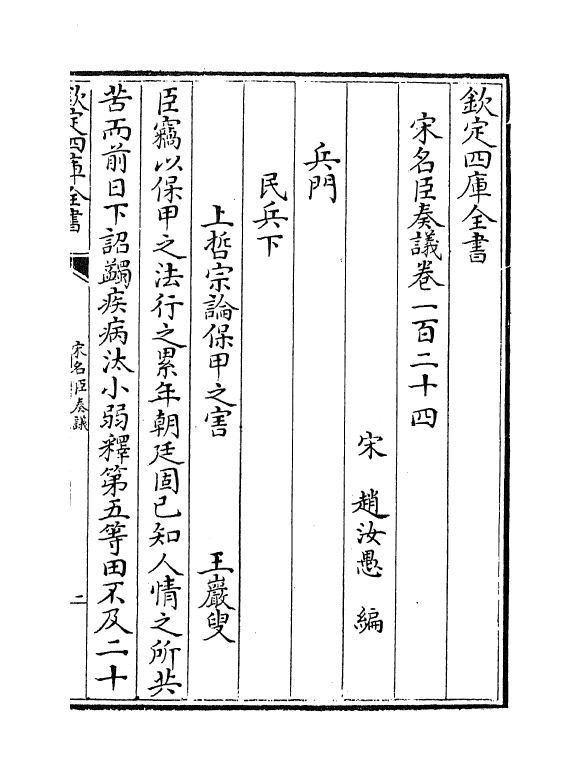 欽定四庫全書
宋名臣奏議卷一百二十四
宋 趙汝愚 編
兵門
民兵下
上哲宗論保甲之害 王巖叟
臣竊以保甲之法行之累年朝廷固已知人情之所共
苦而前日下詔蠲疾病汰小弱釋第五等田不及二十
欽定四庫全書
宋名臣奏議